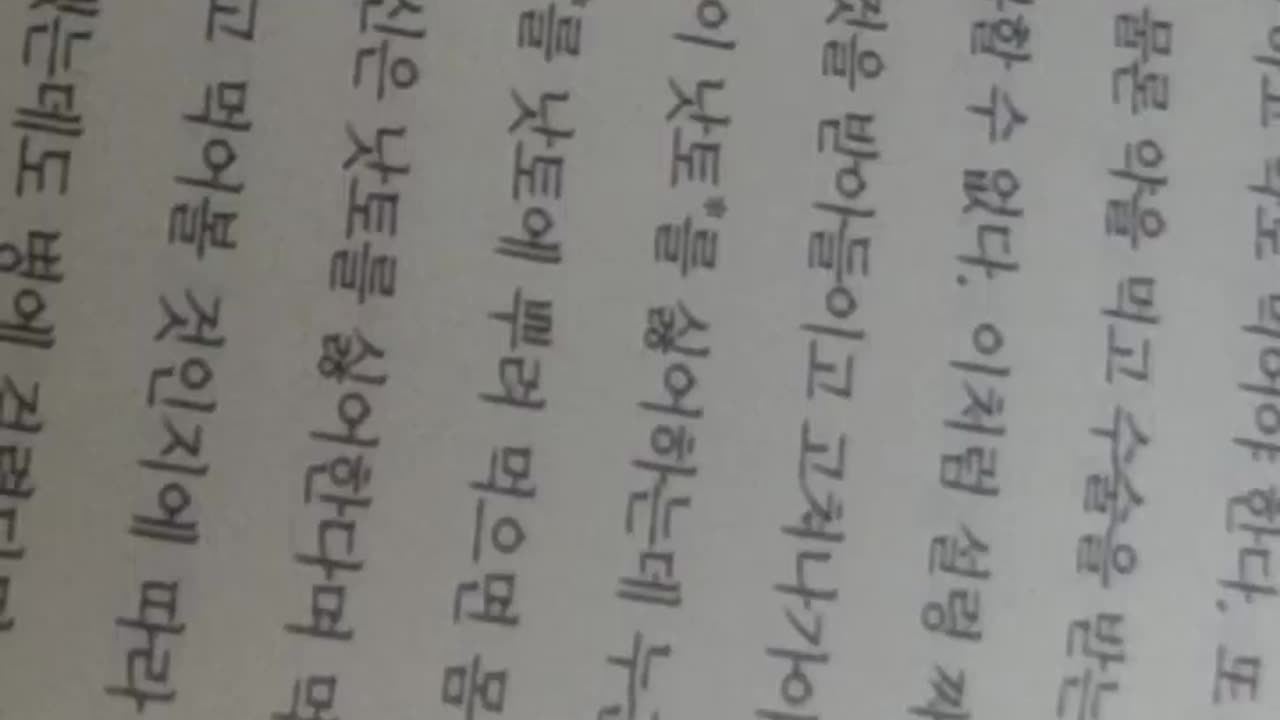 먹어야 한다. 또
물론 약을 먹고 수술을 받는
할 수 없다. 이처럼 설령
것을 받아들이고 고쳐나가야
이 낫토*를 싫어하는데
를 낫토에 뿌려 먹으면 몸
신은 낫토를 싫어한다며
고 먹어볼 것인지에 따라
는데도 병에 걸렸다면